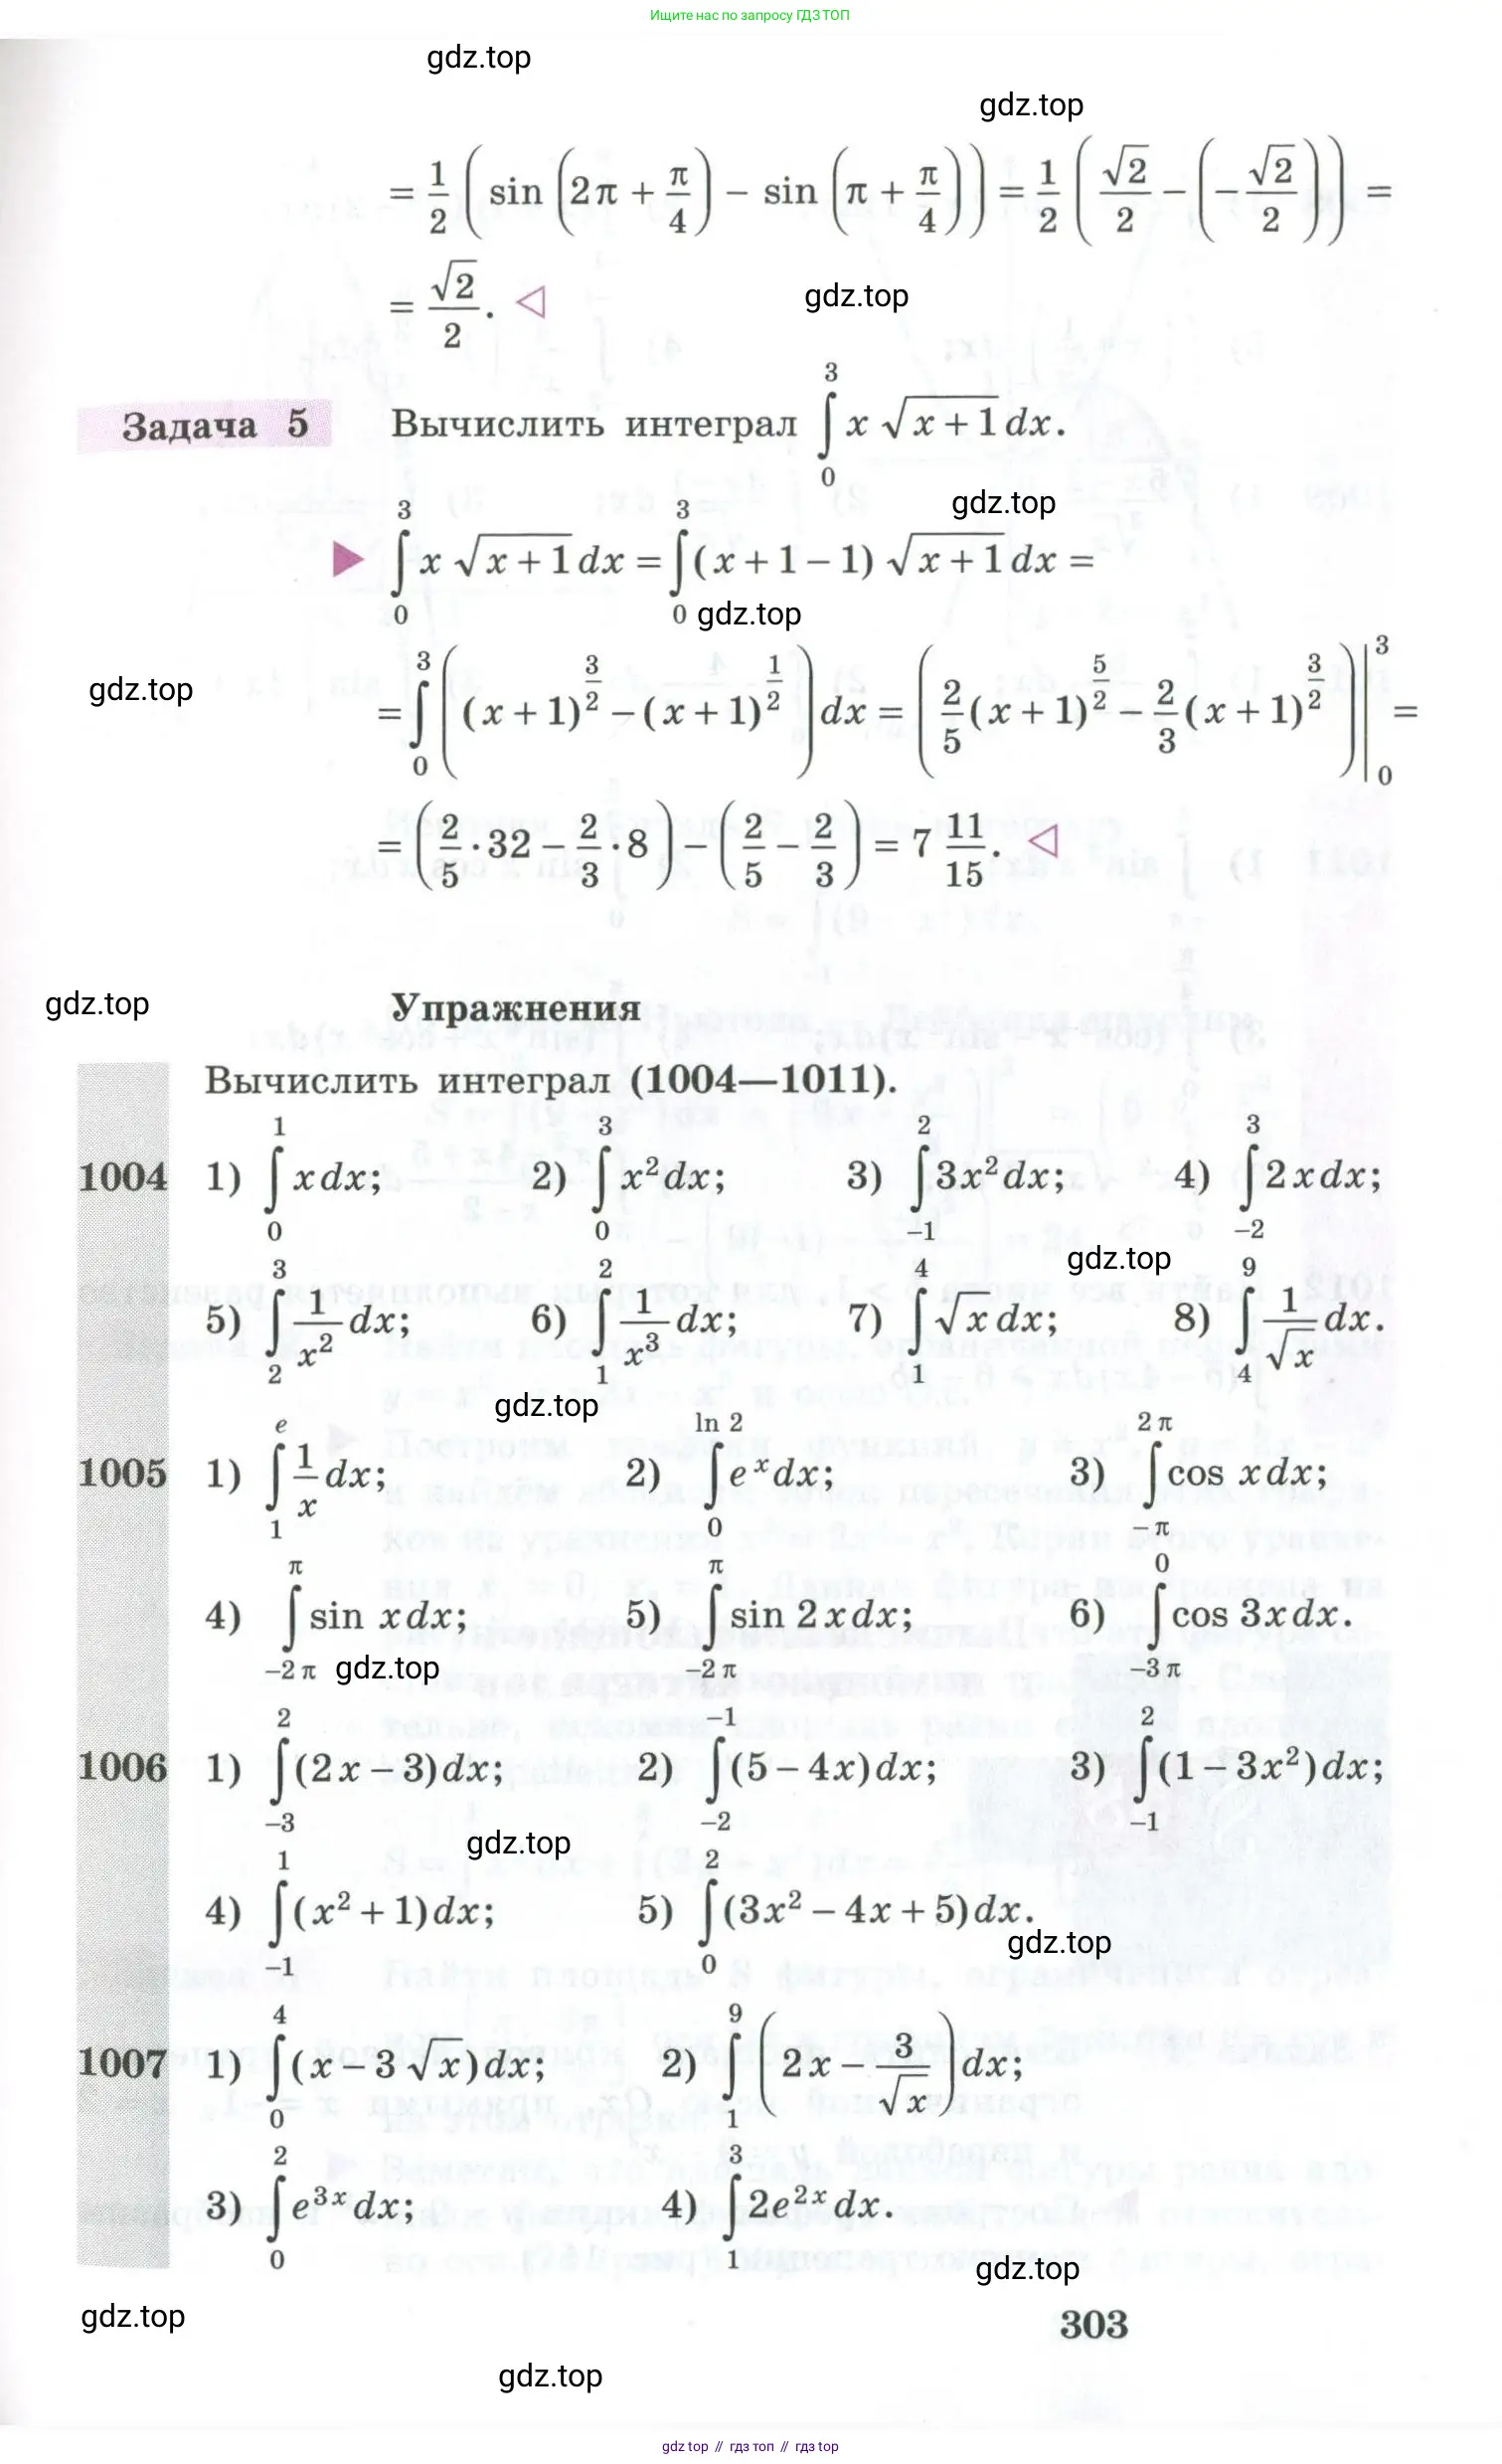 Ищите нас по запросу ГДЗ ТОП
gdz.top
gdz.top
= 1/2 (sin (2π + π/4) − sin (π + π/4)) = 1/2 (√2/2 − (−√2/2)) =
= √2/2. ◁
gdz.top
Задача 5 Вычислить интеграл ∫₀³ x √(x + 1) dx.
gdz.top
▶ ∫₀³ x √(x + 1) dx = ∫₀³ (x + 1 − 1) √(x + 1) dx =
gdz.top
gdz.top
= ∫₀³ ((x + 1)^(3/2) − (x + 1)^(1/2)) dx = (2/5 (x + 1)^(5/2) − 2/3 (x + 1)^(3/2)) |₀³ =
= (2/5 · 32 − 2/3 · 8) − (2/5 − 2/3) = 7 11/15. ◁
gdz.top
Упражнения
Вычислить интеграл (1004—1011).
1004 1) ∫₀¹ x dx; 2) ∫₀³ x² dx; 3) ∫₋₁² 3x² dx; 4) ∫₋₂³ 2x dx;
gdz.top
5) ∫₂³ 1/x² dx; 6) ∫₁² 1/x³ dx; 7) ∫₁⁴ √x dx; 8) ∫₄⁹ 1/√x dx.
gdz.top
1005 1) ∫₁^e 1/x dx; 2) ∫₀^(ln 2) e^x dx; 3) ∫_(−π)^(2π) cos x dx;
4) ∫_(−2π)^π sin x dx; 5) ∫_(−2π)^π sin 2x dx; 6) ∫_(−3π)^0 cos 3x dx.
gdz.top
1006 1) ∫₋₃² (2x − 3) dx; 2) ∫₋₂⁻¹ (5 − 4x) dx; 3) ∫₋₁² (1 − 3x²) dx;
gdz.top
4) ∫₋₁¹ (x² + 1) dx; 5) ∫₀² (3x² − 4x + 5) dx.
gdz.top
1007 1) ∫₀⁴ (x − 3 √x) dx; 2) ∫₁⁹ (2x − 3/√x) dx;
3) ∫₀² e^(3x) dx; 4) ∫₁³ 2e^(2x) dx.
gdz.top
gdz.top
303
gdz.top
gdz top // гдз топ // гдз top